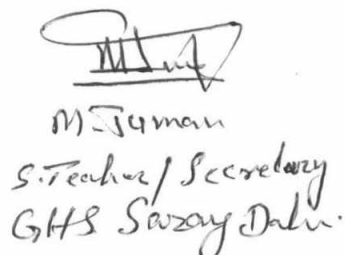 M. Juman
S. Teacher / Secretary
GHS Sarzay Dahn.